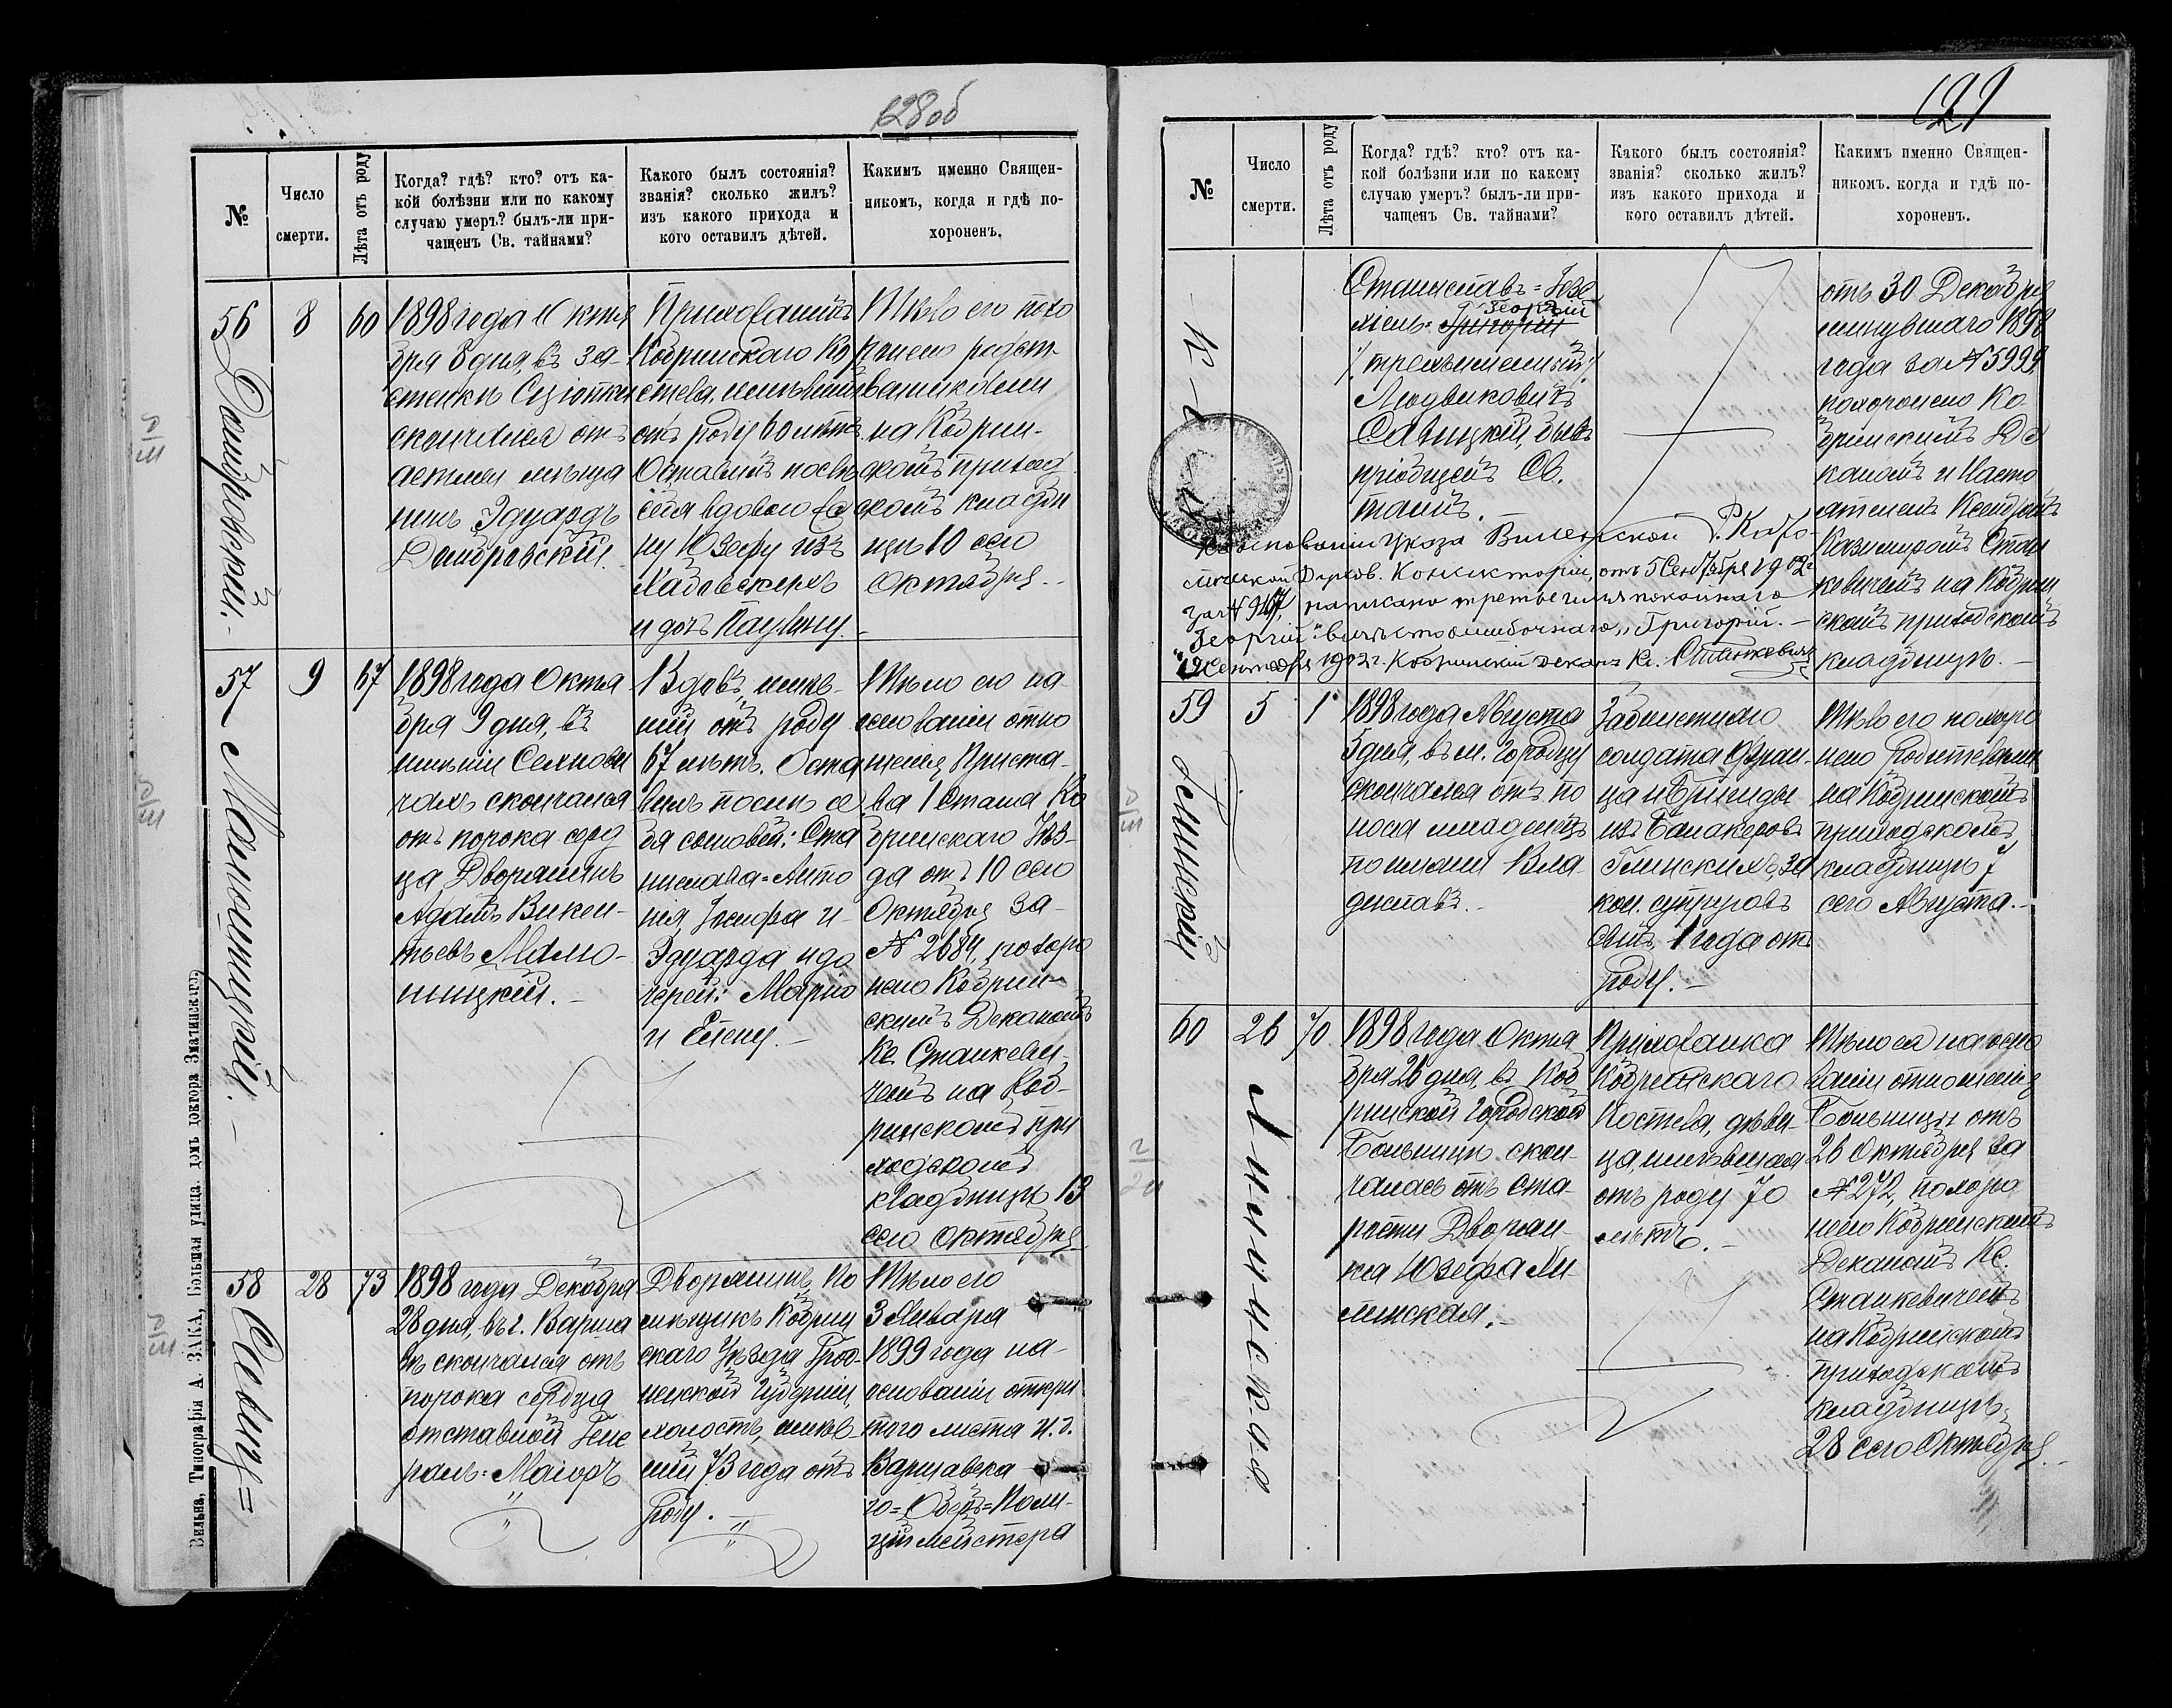 128об
№
Число
смерти.
Лѣта отъ роду
Когда? гдѣ? кто? отъ ка-
кой болѣзни или по какому
случаю умеръ? былъ-ли при-
чащенъ Св. тайнами?
Какого былъ состоянія?
званія? сколько жилъ?
изъ какого прихода и
кого оставилъ дѣтей.
Какимъ именно Священ-
никомъ, когда и гдѣ по-
хороненъ.
56
Домбровскій.
8
60
1898 года Октя
бря 8 дня, въ за-
стенкѣ
скончался отъ
астмы мѣща
нинъ Эдуардъ
Домбровскій.
Прихожанинъ
Кобринскаго Ко
стела, имѣвшій
отъ роду 60 лѣтъ.
Оставилъ послѣ
себя вдовою
ну Юзефу изъ
и дочь Паулину.
Тѣло его похо
ронено родст-
венниками
на Кобрин-
скомъ приход
скомъ кладби
щѣ 10 сего
Октября.
57
Малошицкій.
9
67
1898 года Октя
бря 9 дня, въ
имѣніи Сехнови
чахъ скончался
отъ порока серд
ца Дворянинъ
Адамъ Викен-
тьевъ Мало-
шицкій.
Вдовъ, имѣв-
шій отъ роду
67 лѣтъ. Оста
вилъ послѣ се
бя сыновей: Ста
нислава-Анто
нія, Іосифа и
Эдуарда и до
черей: Марію
и Елену.
Тѣло его на
основаніи отно
шенія, Приста-
ва 1 Стана Ко
бринскаго Уѣз-
да отъ 10 сего
Октября за
№ 2684, похоро
нено Кобрин-
скимъ Деканомъ
Кс. Станкеви-
чемъ на Коб-
ринскомъ при
ходскомъ
кладбищѣ 13
сего Октября
58
Савиц=
28
73
1898 года Декабря
28 дня, въ г. Варша
вѣ скончался отъ
порока сердца
отставной Гене
ралъ-Маіоръ
Дворянинъ, По
мѣщикъ Кобрин
скаго Уѣзда Грод-
ненской Губерніи,
холостъ, имѣв
шій 73 года отъ
роду.
Тѣло его
3 Января
1899 года на-
основаніи откры
того листа И. д.
Варшавска
го-Оберъ-Поли-
ціймейстера
Вильна, Типографія А. ЗАКА, Большая улица. домъ доктора Зматинскаго.
129
№
Число
смерти.
Лѣта отъ роду
Когда? гдѣ? кто? отъ ка-
кой болѣзни или по какому
случаю умеръ? былъ-ли при-
чащенъ Св. тайнами?
Какого былъ состоянія?
званія? сколько жилъ?
изъ какого прихода и
кого оставилъ дѣтей.
Какимъ именно Священ-
никомъ. когда и гдѣ по-
хороненъ.
Станиславъ-
Георгій
Григорій
/: трехъименный :/
Людвиковичъ
Савицкій, бывъ
пріобщенъ Св.
таинъ.
отъ 30 Декабря
минувшаго 1898
года за № 5999
похоронено Ко
бринскимъ Де
каномъ и Насто
ятелемъ Ксендзомъ
Казимиромъ Стан
кевичемъ на Кобрин
скомъ приходскомъ
кладбищѣ.
На основаніи Указа Виленской Р. Като-
лической Духов. Консисторіи, отъ 5 Сентября 1902 г.
за № 9107, написано третье имя покойнаго
"Георгій" вмѣсто ошибочнаго "Григорій".
12 Сентября 1902 г. Кобринскій Деканъ Кс. Станкевичъ
59
Глинскій
5
1
1898 года Августа
5 дня, въ м. Городцу
скончался отъ по
носа младенецъ
по имени Вла
диславъ.
солдата Фран-
ца и Бригиды
изъ
Глинскихъ, за
кон. супруговъ
сынъ, 1 года отъ
роду.
Тѣло его похоро
нено родителями
на Кобринскомъ
приходскомъ
кладбищѣ 7
сего Августа.
60
Липинская
26
70
1898 года Октя
бря 26 дня, въ Коб
ринской городской
Больницѣ скон-
чалась отъ ста-
рости Дворян-
ка Юзефа Ли-
пинская.
Прихожанка
Кобринскаго
Костела, дѣви-
ца, имѣвшая
отъ роду 70
лѣтъ.
Тѣло ея на осно
ваніи отношенія
Больницы отъ
26 Октября за
№ 272, похоро
нено Кобринскимъ
Деканомъ Кс.
Станкевичемъ
на Кобринскомъ
приходскомъ
кладбищѣ,
28 сего Октября